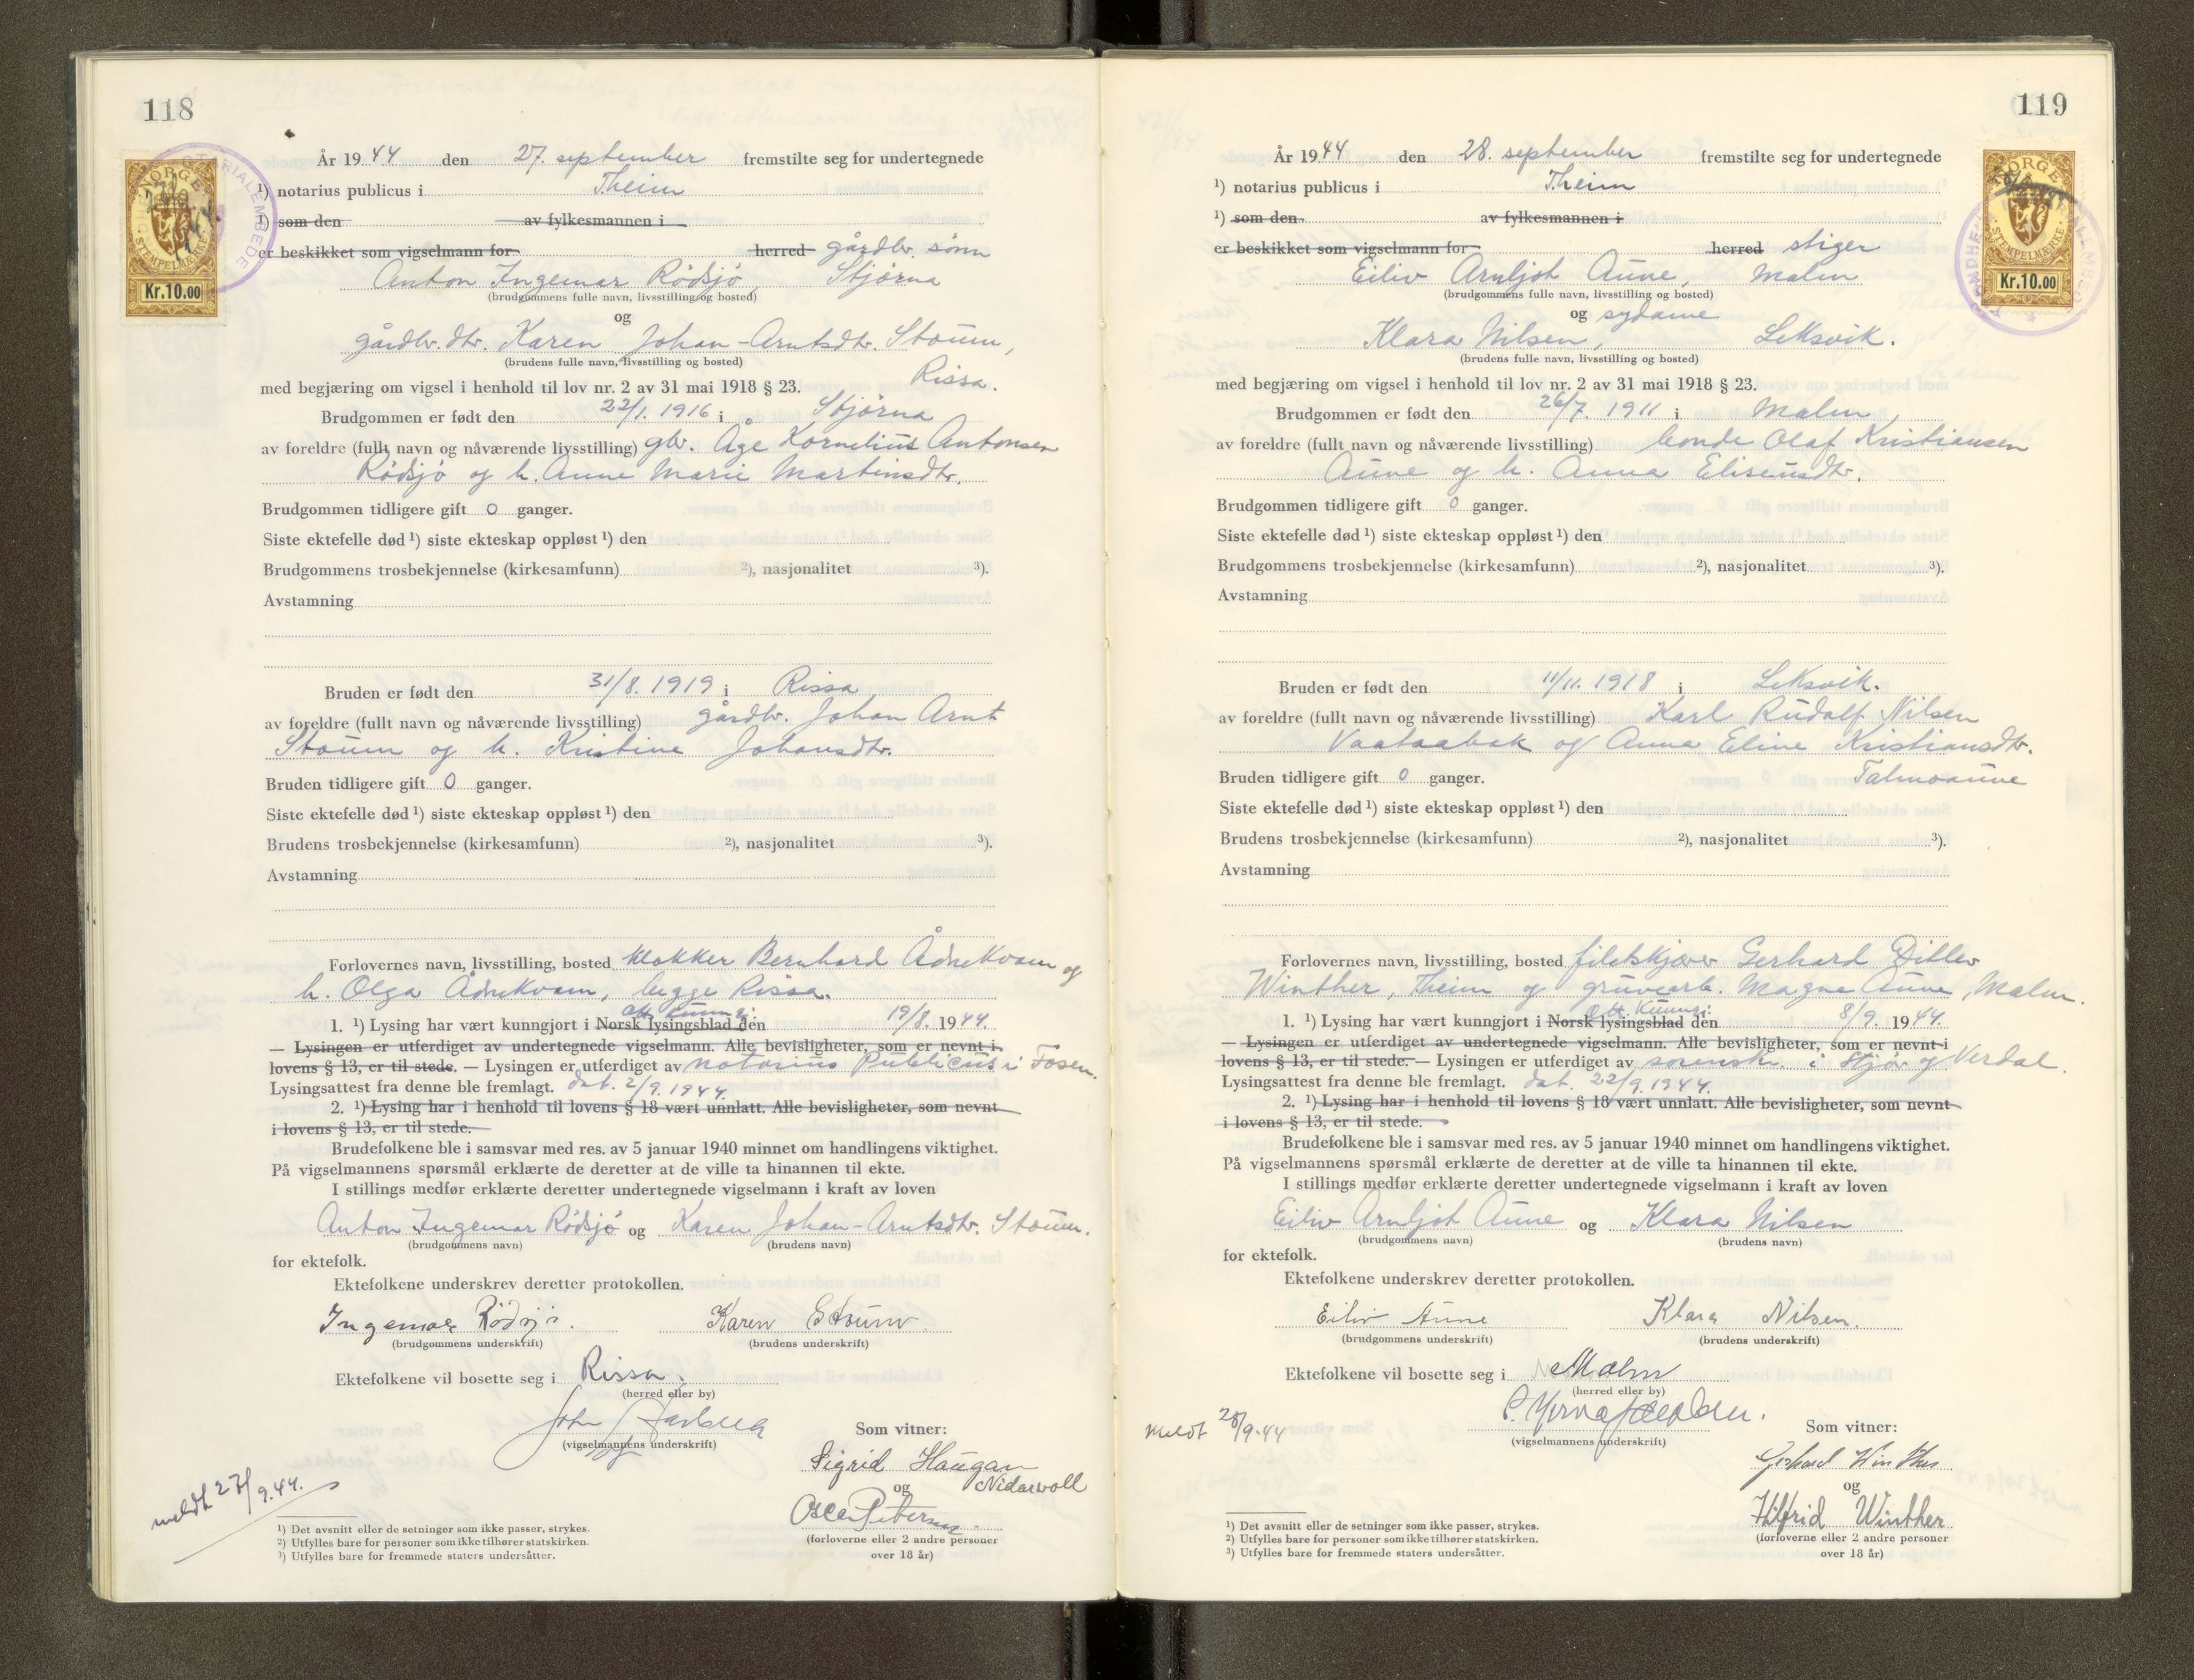 118
År 1944 den 27. september fremstilte seg for undertegnede
¹) notarius publicus i Theim
¹) som den av fylkesmannen i
er beskikket som vigselmann for herred gårdbr. sönn
Anton Ingemar Rödsjö, Stjörna
(brudgommens fulle navn, livsstilling og bosted)
og
gårdbr. dtr. Karen Johan-Arntsdtr. Stoum,
(brudens fulle navn, livsstilling og bosted)
Rissa.
med begjæring om vigsel i henhold til lov nr. 2 av 31 mai 1918 § 23.
Brudgommen er født den 22/1. 1916 i Stjörna
av foreldre (fullt navn og nåværende livsstilling) gbr. Åge Kornelius Antonsen
Rödsjö og h. Anne Marie Martinsdtr.
Brudgommen tidligere gift 0 ganger.
Siste ektefelle død ¹) siste ekteskap oppløst ¹) den
Brudgommens trosbekjennelse (kirkesamfunn) ²), nasjonalitet ³).
Avstamning
Bruden er født den 31/8. 1919 i Rissa
av foreldre (fullt navn og nåværende livsstilling) gårdbr. Johan Arnt
Stoum og h. Kristine Johansdtr.
Bruden tidligere gift 0 ganger.
Siste ektefelle død ¹) siste ekteskap oppløst ¹) den
Brudens trosbekjennelse (kirkesamfunn) ²), nasjonalitet ³).
Avstamning
Forlovernes navn, livsstilling, bosted klokker Bernhard Ådnekvam og
h. Olga Ådnekvam, begge Rissa.
off. kunngj.
1. ¹) Lysing har vært kunngjort i Norsk lysingsblad den 19/8. 1944.
— Lysingen er utferdiget av undertegnede vigselmann. Alle bevisligheter, som er nevnt i
lovens § 13, er til stede. — Lysingen er utferdiget av notarius Publicus i Fosen.
Lysingsattest fra denne ble fremlagt. dat. 2/9. 1944.
2. ¹) Lysing har i henhold til lovens § 18 vært unnlatt. Alle bevisligheter, som nevnt
i lovens § 13, er til stede.
Brudefolkene ble i samsvar med res. av 5 januar 1940 minnet om handlingens viktighet.
På vigselmannens spørsmål erklærte de deretter at de ville ta hinannen til ekte.
I stillings medfør erklærte deretter undertegnede vigselmann i kraft av loven
Anton Ingemar Rödsjö og Karen Johan-Arntsdtr. Stoum.
(brudgommens navn) (brudens navn)
for ektefolk.
Ektefolkene underskrev deretter protokollen.
Ingemar Rödsjö. Karen Stoum
(brudgommens underskrift) (brudens underskrift)
Ektefolkene vil bosette seg i Rissa.
(herred eller by)
John
(vigselmannens underskrift)
Som vitner:
Sigrid Haugan
og Nidarvoll
Oscar Petersen
(forloverne eller 2 andre personer
over 18 år)
meldt 27/9.44.
¹) Det avsnitt eller de setninger som ikke passer, strykes.
²) Utfylles bare for personer som ikke tilhører statskirken.
³) Utfylles bare for fremmede staters undersåtter.
NORGE
STEMPELMERKE
Kr.10.00
119
År 1944 den 28. september fremstilte seg for undertegnede
¹) notarius publicus i Theim
¹) som den av fylkesmannen i
er beskikket som vigselmann for herred stiger
Eiliv Arnljot Aune, Malm
(brudgommens fulle navn, livsstilling og bosted)
og sydame
Klara Nilsen, Leksvik.
(brudens fulle navn, livsstilling og bosted)
med begjæring om vigsel i henhold til lov nr. 2 av 31 mai 1918 § 23.
Brudgommen er født den 26/7. 1911 i Malm,
av foreldre (fullt navn og nåværende livsstilling) bonde Olaf Kristiansen
Aune og h. Anna Eliseusdtr.
Brudgommen tidligere gift 0 ganger.
Siste ektefelle død ¹) siste ekteskap oppløst ¹) den
Brudgommens trosbekjennelse (kirkesamfunn) ²), nasjonalitet ³).
Avstamning
Bruden er født den 11/11. 1918 i Leksvik.
av foreldre (fullt navn og nåværende livsstilling) Karl Rudolf Nilsen
Vaataabak og Anna Eline Kristiansdtr.
Bruden tidligere gift 0 ganger. Talmoaune
Siste ektefelle død ¹) siste ekteskap oppløst ¹) den
Brudens trosbekjennelse (kirkesamfunn) ²), nasjonalitet ³).
Avstamning
Forlovernes navn, livsstilling, bosted filetskjærer Gerhard Ditlev
Winther, Theim og gruvearb. Magne Aune, Malm.
off. kunngj.
1. ¹) Lysing har vært kunngjort i Norsk lysingsblad den 8/9. 1944.
— Lysingen er utferdiget av undertegnede vigselmann. Alle bevisligheter, som er nevnt i
lovens § 13, er til stede. — Lysingen er utferdiget av sorenskr. i Stjør og Verdal.
Lysingsattest fra denne ble fremlagt. dat. 22/9. 1944.
2. ¹) Lysing har i henhold til lovens § 18 vært unnlatt. Alle bevisligheter, som nevnt
i lovens § 13, er til stede.
Brudefolkene ble i samsvar med res. av 5 januar 1940 minnet om handlingens viktighet.
På vigselmannens spørsmål erklærte de deretter at de ville ta hinannen til ekte.
I stillings medfør erklærte deretter undertegnede vigselmann i kraft av loven
Eiliv Arnljot Aune og Klara Nilsen
(brudgommens navn) (brudens navn)
for ektefolk.
Ektefolkene underskrev deretter protokollen.
Eiliv Aune Klara Nilsen.
(brudgommens underskrift) (brudens underskrift)
Ektefolkene vil bosette seg i Malm
(herred eller by)
(vigselmannens underskrift)
Som vitner:
Gerhard Winther
og
Hilfrid Winther
(forloverne eller 2 andre personer
over 18 år)
meldt 28/9.44
¹) Det avsnitt eller de setninger som ikke passer, strykes.
²) Utfylles bare for personer som ikke tilhører statskirken.
³) Utfylles bare for fremmede staters undersåtter.
NORGE
STEMPELMERKE
Kr.10.00